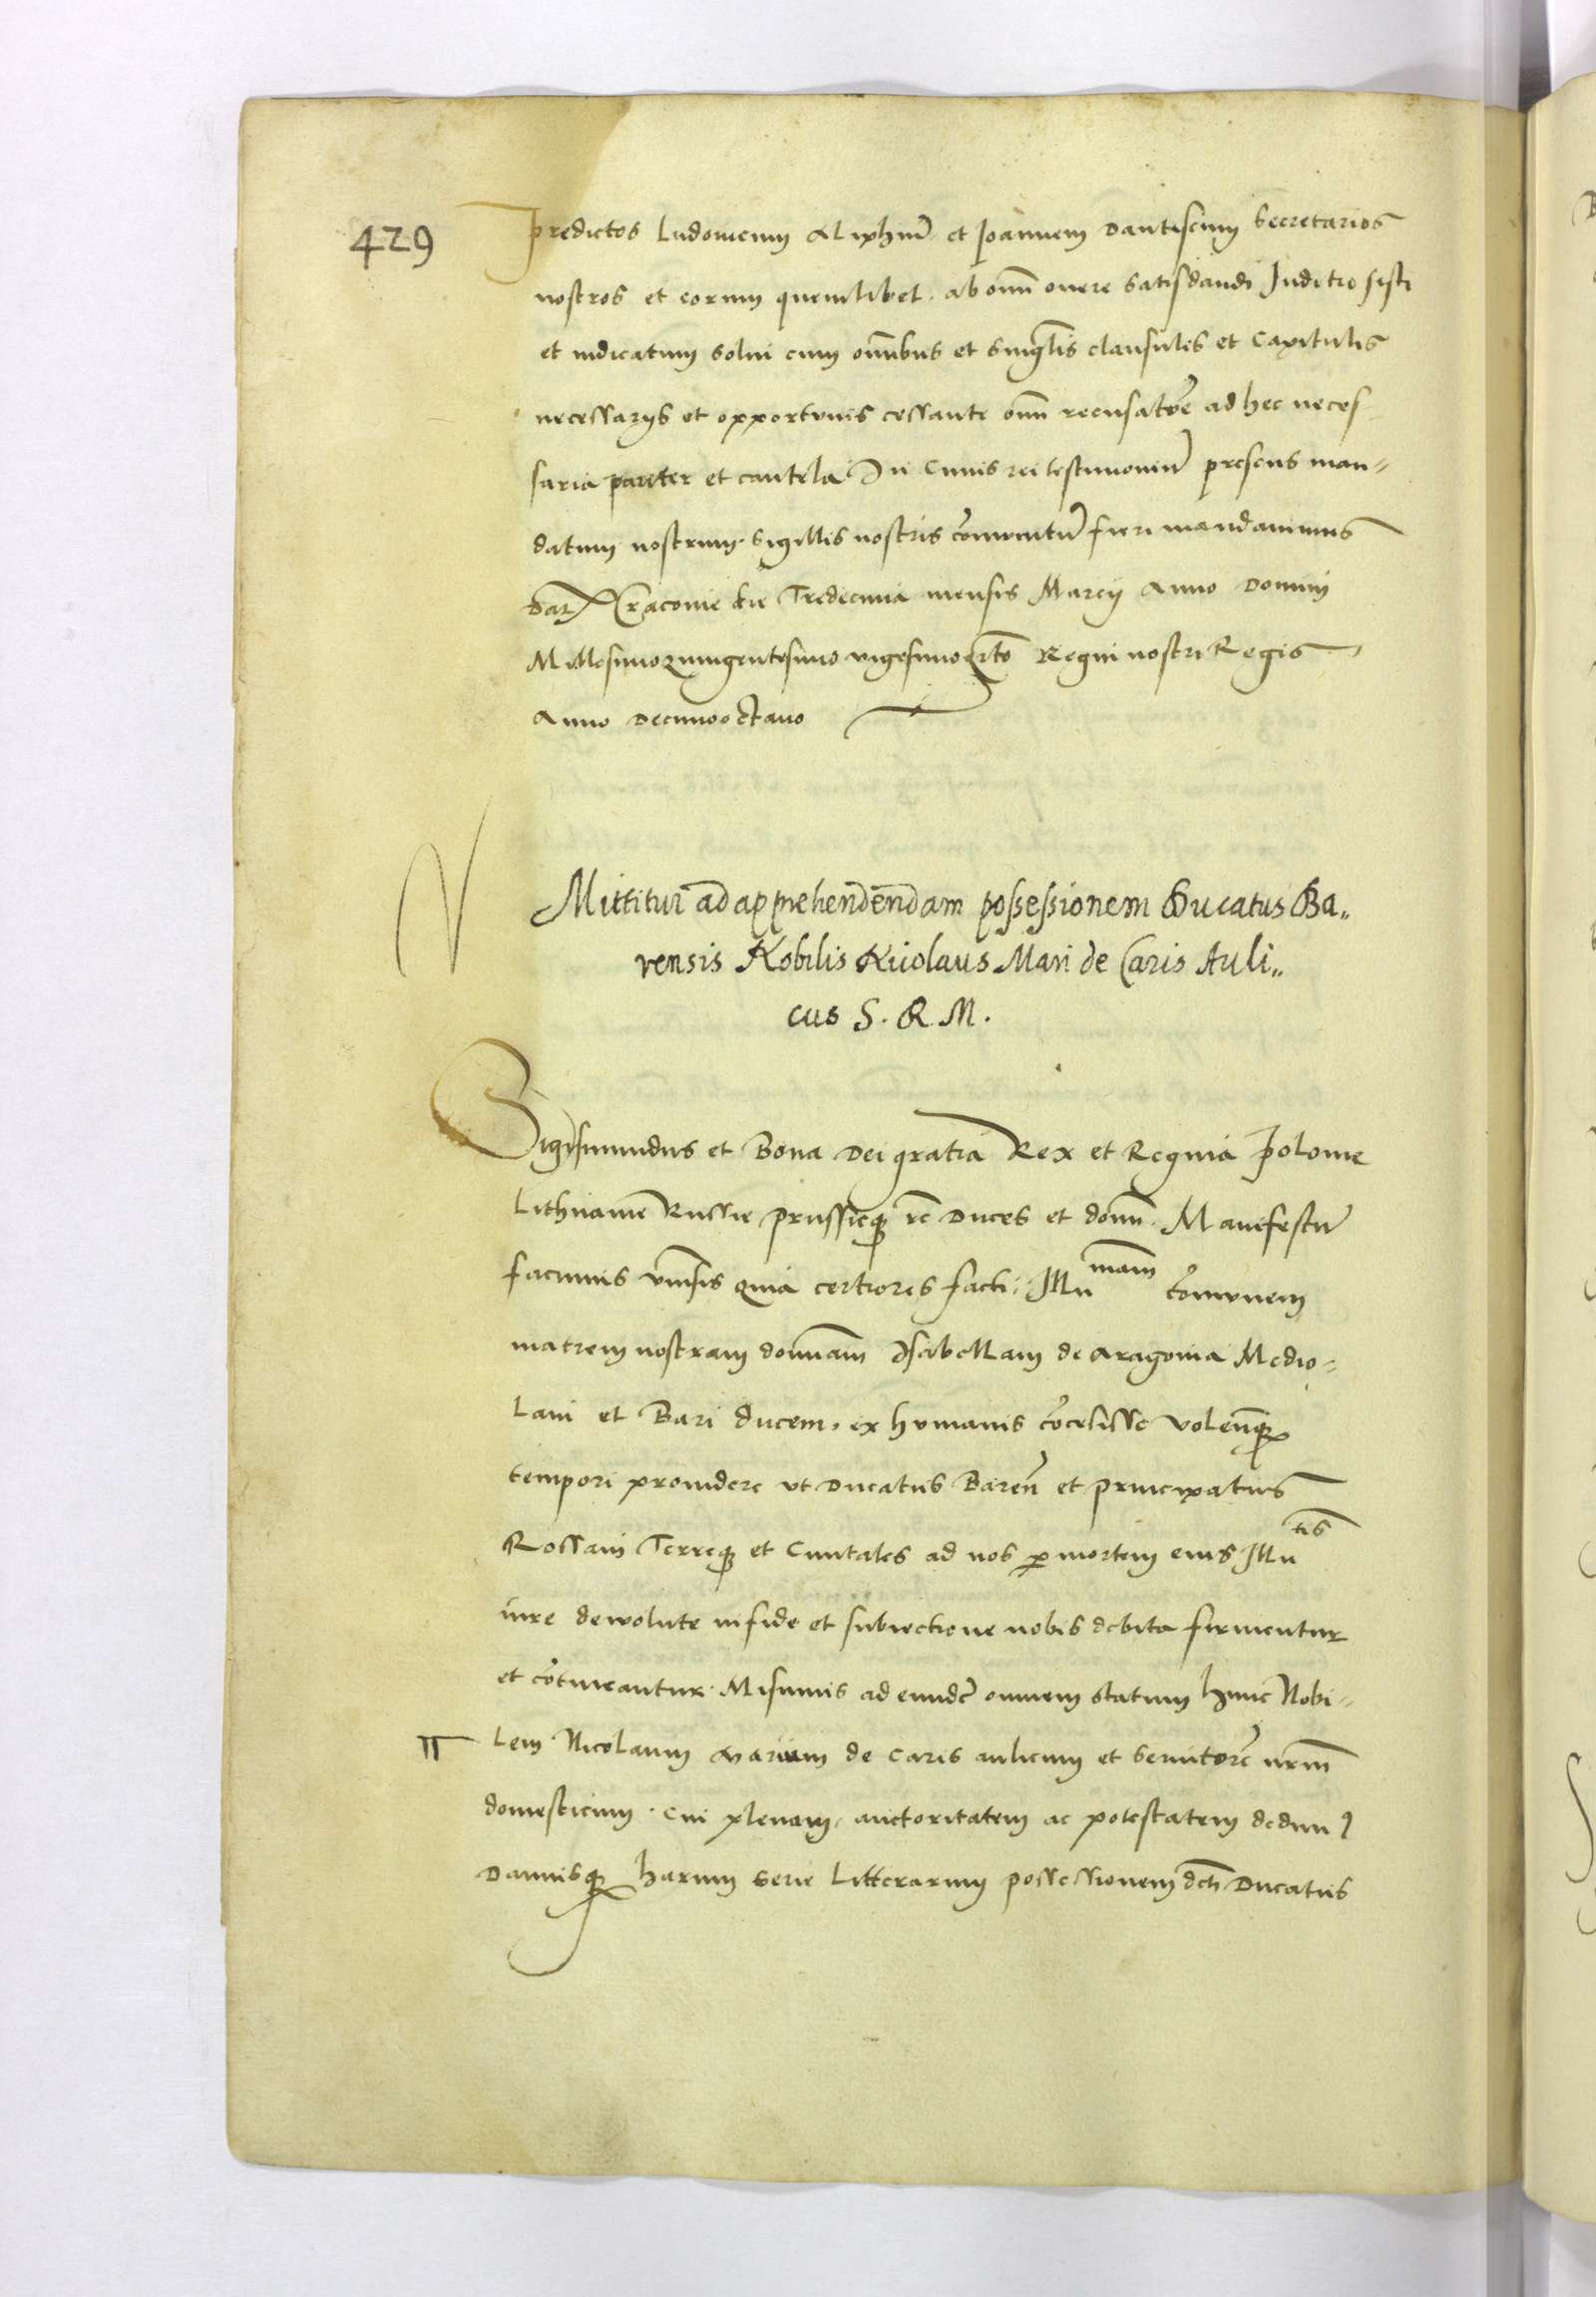 429
predictos Ludovicum Aliphiū et Joannem Dantiscum Secretarios
nostros et eorum quemlibet. ab omni onere satisdandi Juditio sisti
et iudicatum solui cum omnibus et singlis clausulis et Capitulis
necessarijs et opportunis cessante omni recusatoe ad hec neces
saria pariter et cautela In cuius rei testimoniū presens man-
datum nostrum. Sigillis nostris comunitū fieri mandauimus
Dat Cracouie die Tredecima mensis Marcij Anno Domini
Millesimoquingentesimo vigesimoqrto Regni nostri Regis
Anno decimooctauo
Mittitur ad apprehendendam possessionem Ducatus Ba..
rensis Nobilis Nicolaus Mari de Caris Auli..
cus S. R. M.
Sigismundus et Bona Dei gratia Rex et Regina Polonie
Lithuanie Russie prussieqz rc Duces et domi. Manifestū
facimus vniusis quia certiores facti. Illu mam comunem
matrem nostram dominam Isabellam de Aragonia Medio-
lani et Bari ducem, ex humanis cocesisse Volentqz
tempori prouidere vt Ducatus Baren et principatus
Rossani Terreqz et Ciuitates ad nos p mortem eius Illu tis
iure dewolute in fide et subiectione nobis debita firmentur
et cotineantur. Misimus ad eundē omnem statum hunc Nobi-
lem Nicolaum Marium de Caris aulicum et seruitorē nrm
domesticum. cui plenam, auctoritatem ac potestatem dedim9
Damusqz harum serie Litterarum possessionem dcti Ducatus